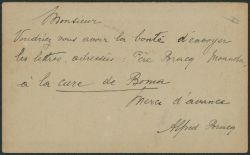 Monsieur
Voudriez vous avoir la bonté d'envoyer
les lettres, adressées : Père
à la cure de Boma
Merci d'avance
Alfred